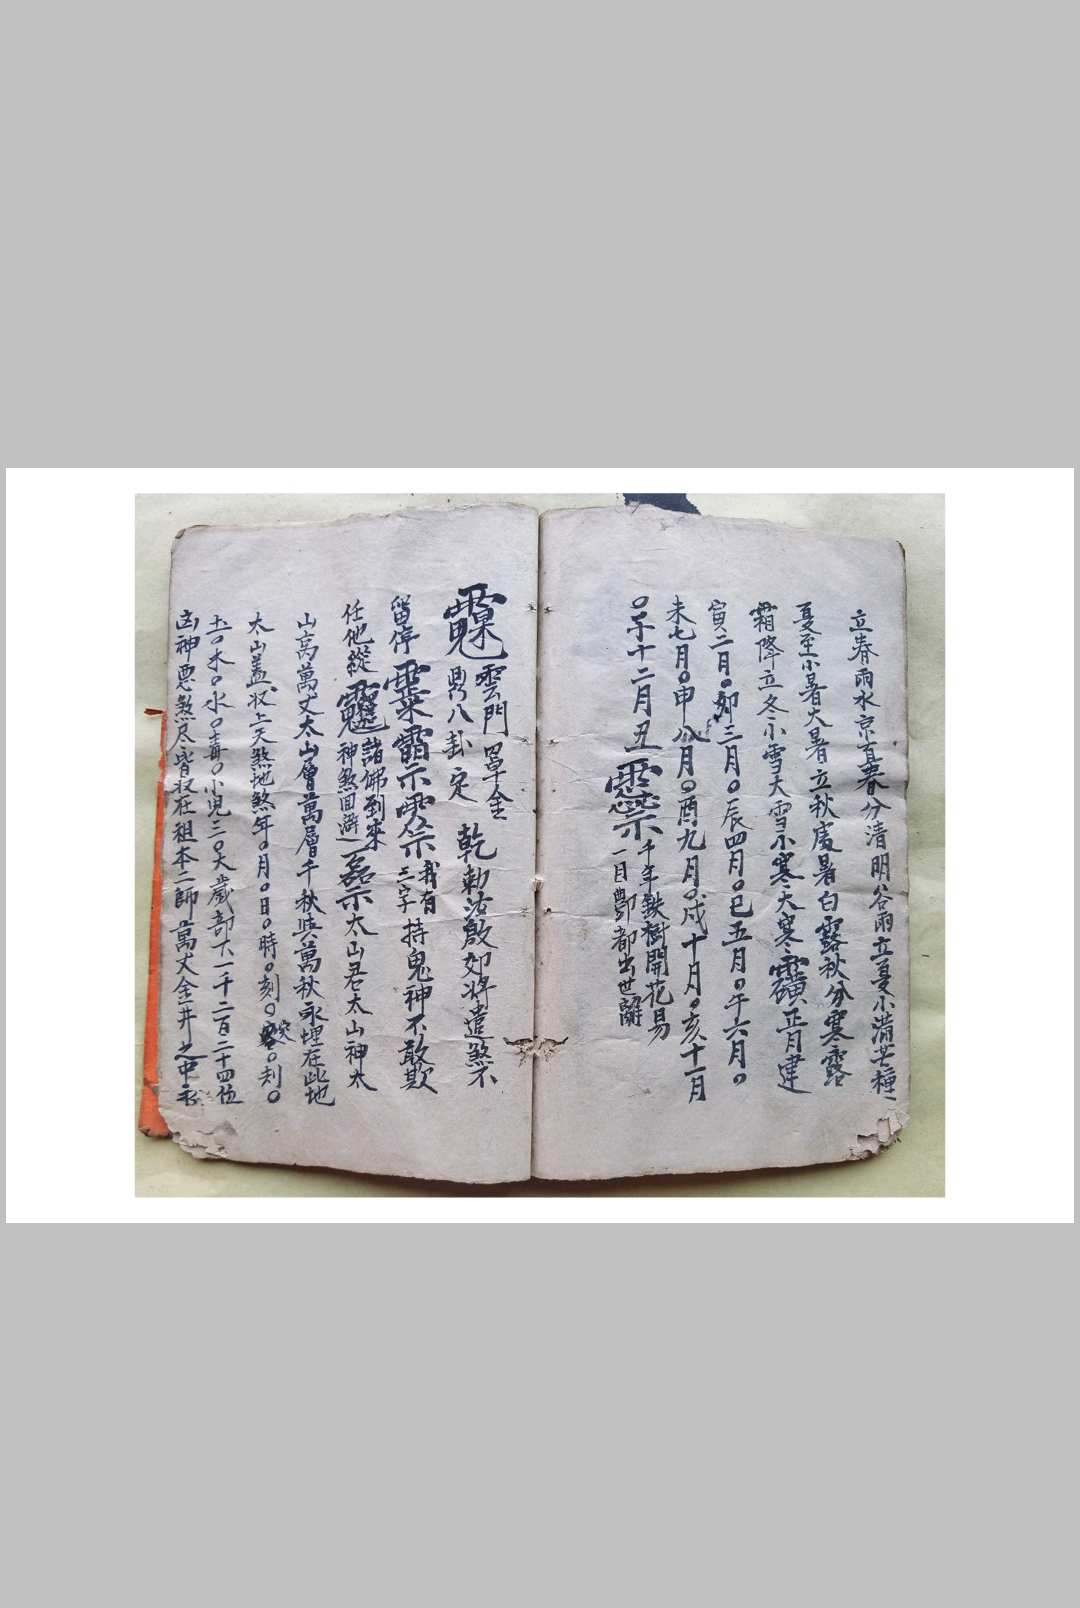 立春雨水京直春分清明谷雨立夏小滿芒種
夏至小暑大暑立秋處暑白露秋分寒露
霜降立冬小雪大雪小寒大寒 正月建
寅二月○卯三月○辰四月○巳五月○午六月○
未七月○申八月○酉九月○戌十月○亥十一月
○子十二月丑
千年鉄樹開花易
一日酆都出世難
雲門罩金
鼎八卦定
乾勅法啟 將遣煞不
留停
我有
三字
持鬼神不敢欺
任他縱
諸佛到來
神煞回避
太山君太山神太
山高萬丈太山層萬層千秋與萬秋永埋在此地
太山盖收上天煞地煞年○月○日○時○刻○
○木○水○毒○小児三○大歲部下一千二百二十四位
凶神悪煞尽皆収在祖本二師萬丈金井之中永